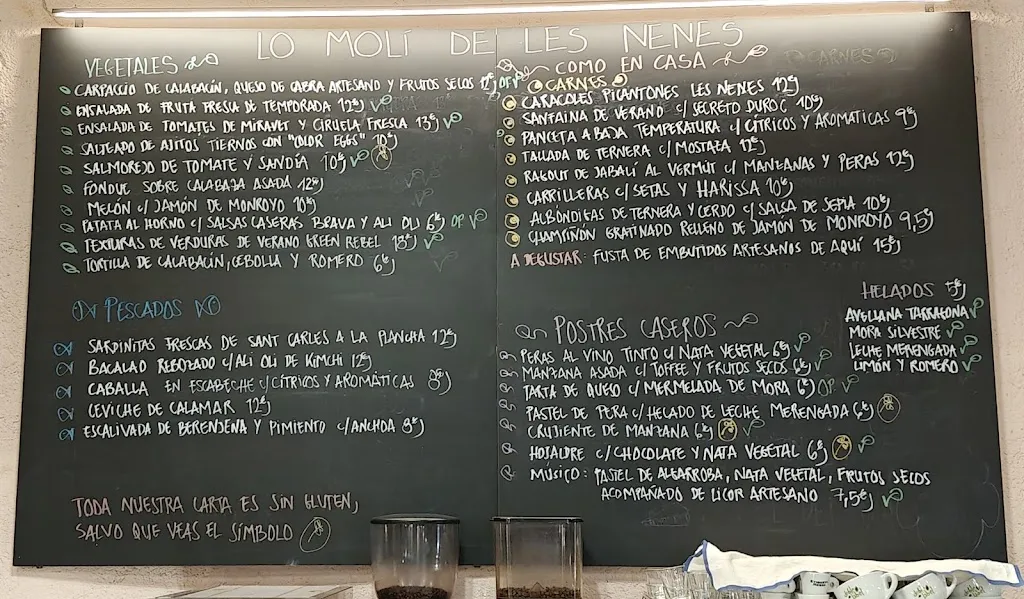 LO MOLÍ DE LES NENES
VEGETALES
CARPACCIO DE CALABACÍN, QUESO DE CABRA ARTESANO Y FRUTOS SECOS 12€ OP V
ENSALADA DE FRUTA FRESCA DE TEMPORADA 12€ V
ENSALADA DE TOMATES DE MIRAVET Y CIRUELA FRESCA 13€ V
SALTEADO DE AJITOS TIERNOS CON "COLOR EGGS" 10€
SALMOREJO DE TOMATE Y SANDÍA 10€ V
FONDUE SOBRE CALABAZA ASADA 12€
MELÓN C/ JAMÓN DE MONROYO 10€
PATATA AL HORNO C/ SALSAS CASERAS BRAVA Y ALI OLI 6€ OP V
TEXTURAS DE VERDURAS DE VERANO GREEN REBEL 13€ V
TORTILLA DE CALABACÍN, CEBOLLA Y ROMERO 6€
PESCADOS
SARDINITAS FRESCAS DE SANT CARLES A LA PLANCHA 12€
BACALAO REBOZADO C/ ALI OLI DE KIMCHI 12€
CABALLA EN ESCABECHE C/ CÍTRICOS Y AROMÁTICAS 8€
CEVICHE DE CALAMAR 12€
ESCALIVADA DE BERENJENA Y PIMIENTO C/ ANCHOA 8€
TODA NUESTRA CARTA ES SIN GLUTEN,
SALVO QUE VEAS EL SÍMBOLO
COMO EN CASA
CARNES
CARNES
CARACOLES PICANTONES LES NENES 12€
SANFAINA DE VERANO C/ SECRETO DUROC 10€
PANCETA A BAJA TEMPERATURA C/ CÍTRICOS Y AROMATICAS 9€
TALLADA DE TERNERA C/ MOSTAZA 12€
RAGOUT DE JABALÍ AL VERMÚT C/ MANZANAS Y PERAS 12€
CARRILLERAS C/ SETAS Y HARISSA 10€
ALBÓNDIGAS DE TERNERA Y CERDO C/ SALSA DE SEPIA 10€
CHAMPIÑÓN GRATINADO RELLENO DE JAMÓN DE MONROYO 9,5€
A DEGUSTAR: FUSTA DE EMBUTIDOS ARTESANOS DE AQUÍ 15€
HELADOS 5€
AVELLANA TARRAGONA V
MORA SILVESTRE V
LECHE MERENGADA V
LIMÓN Y ROMERO V
POSTRES CASEROS
PERAS AL VINO TINTO C/ NATA VEGETAL 6€ V
MANZANA ASADA C/ TOFFEE Y FRUTOS SECOS 6€ V
TARTA DE QUESO C/ MERMELADA DE MORA 6€ OP V
PASTEL DE PERA C/ HELADO DE LECHE MERENGADA 6€
CRUJIENTE DE MANZANA 6€ V
HOJALDRE C/ CHOCOLATE Y NATA VEGETAL 6€ V
MÚSICO: PASTEL DE ALGARROBA, NATA VEGETAL, FRUTOS SECOS
ACOMPAÑADO DE LICOR ARTESANO 7,5€ V